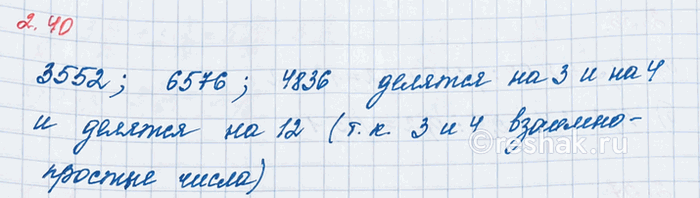 2.40
3552; 6576; 4836 делятся на 3 и на 4
и делятся на 12 (т.к. 3 и 4 взаимно-
простые числа)
reshak.ru